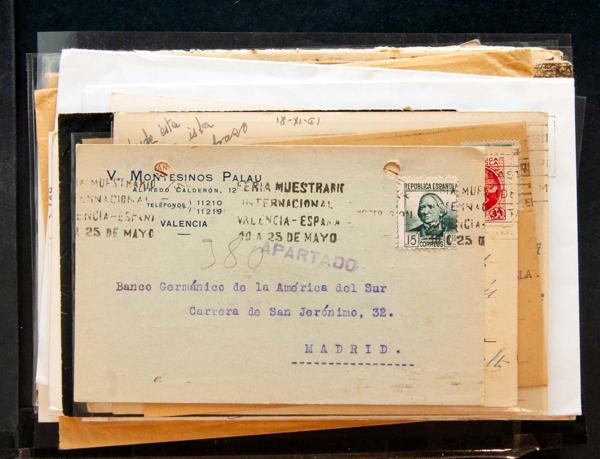 18-XI-61
esta
V. MONTESINOS PALAU
ALFREDO CALDERÓN, 12
TELÉFONOS 11210
11219
VALENCIA
FERIA MUESTRARIO
INTERNACIONAL
VALENCIA-ESPAÑA
10 A 25 DE MAYO
REPUBLICA ESPAÑOLA
15 CTS
CORREOS
380
APARTADO
Banco Germánico de la América del Sur
Carrera de San Jerónimo, 32.
MADRID.